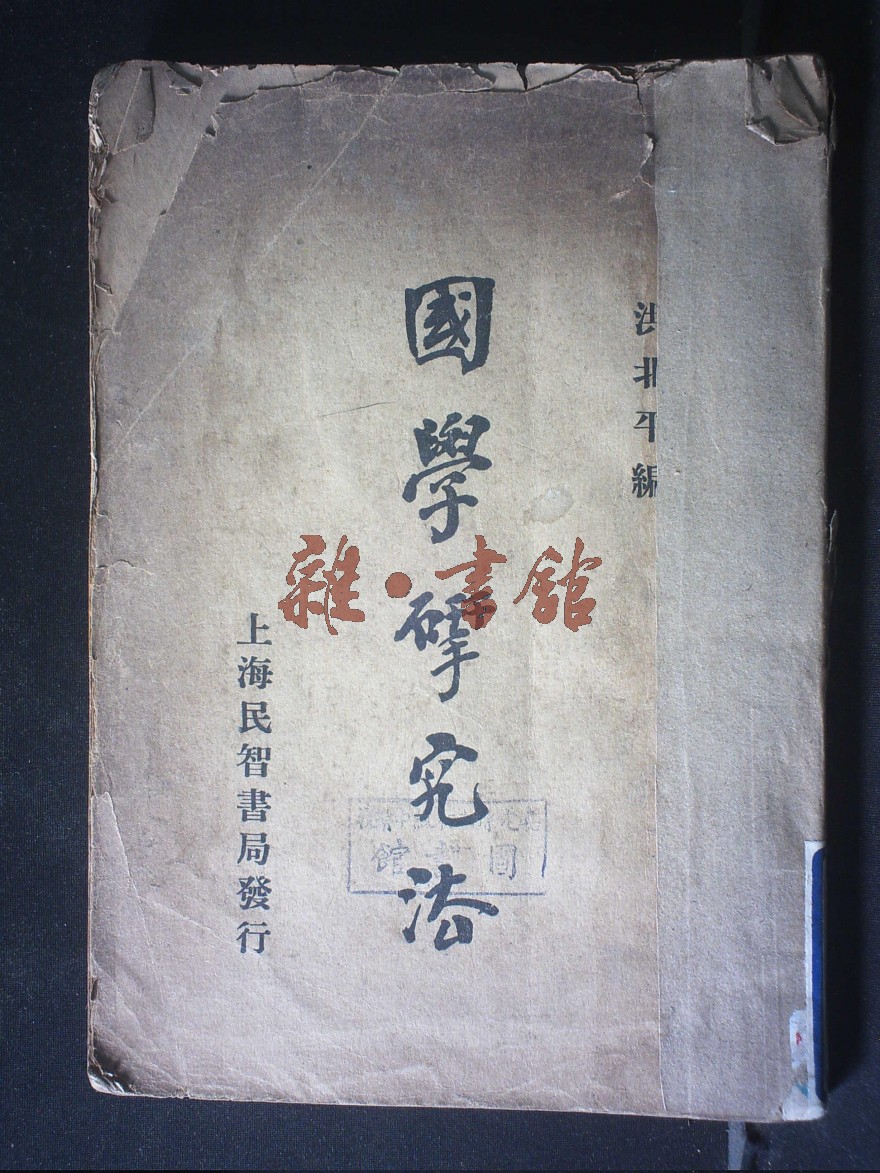 洪北平編
國學研究法
上海民智書局發行
雜·書館
圖書館